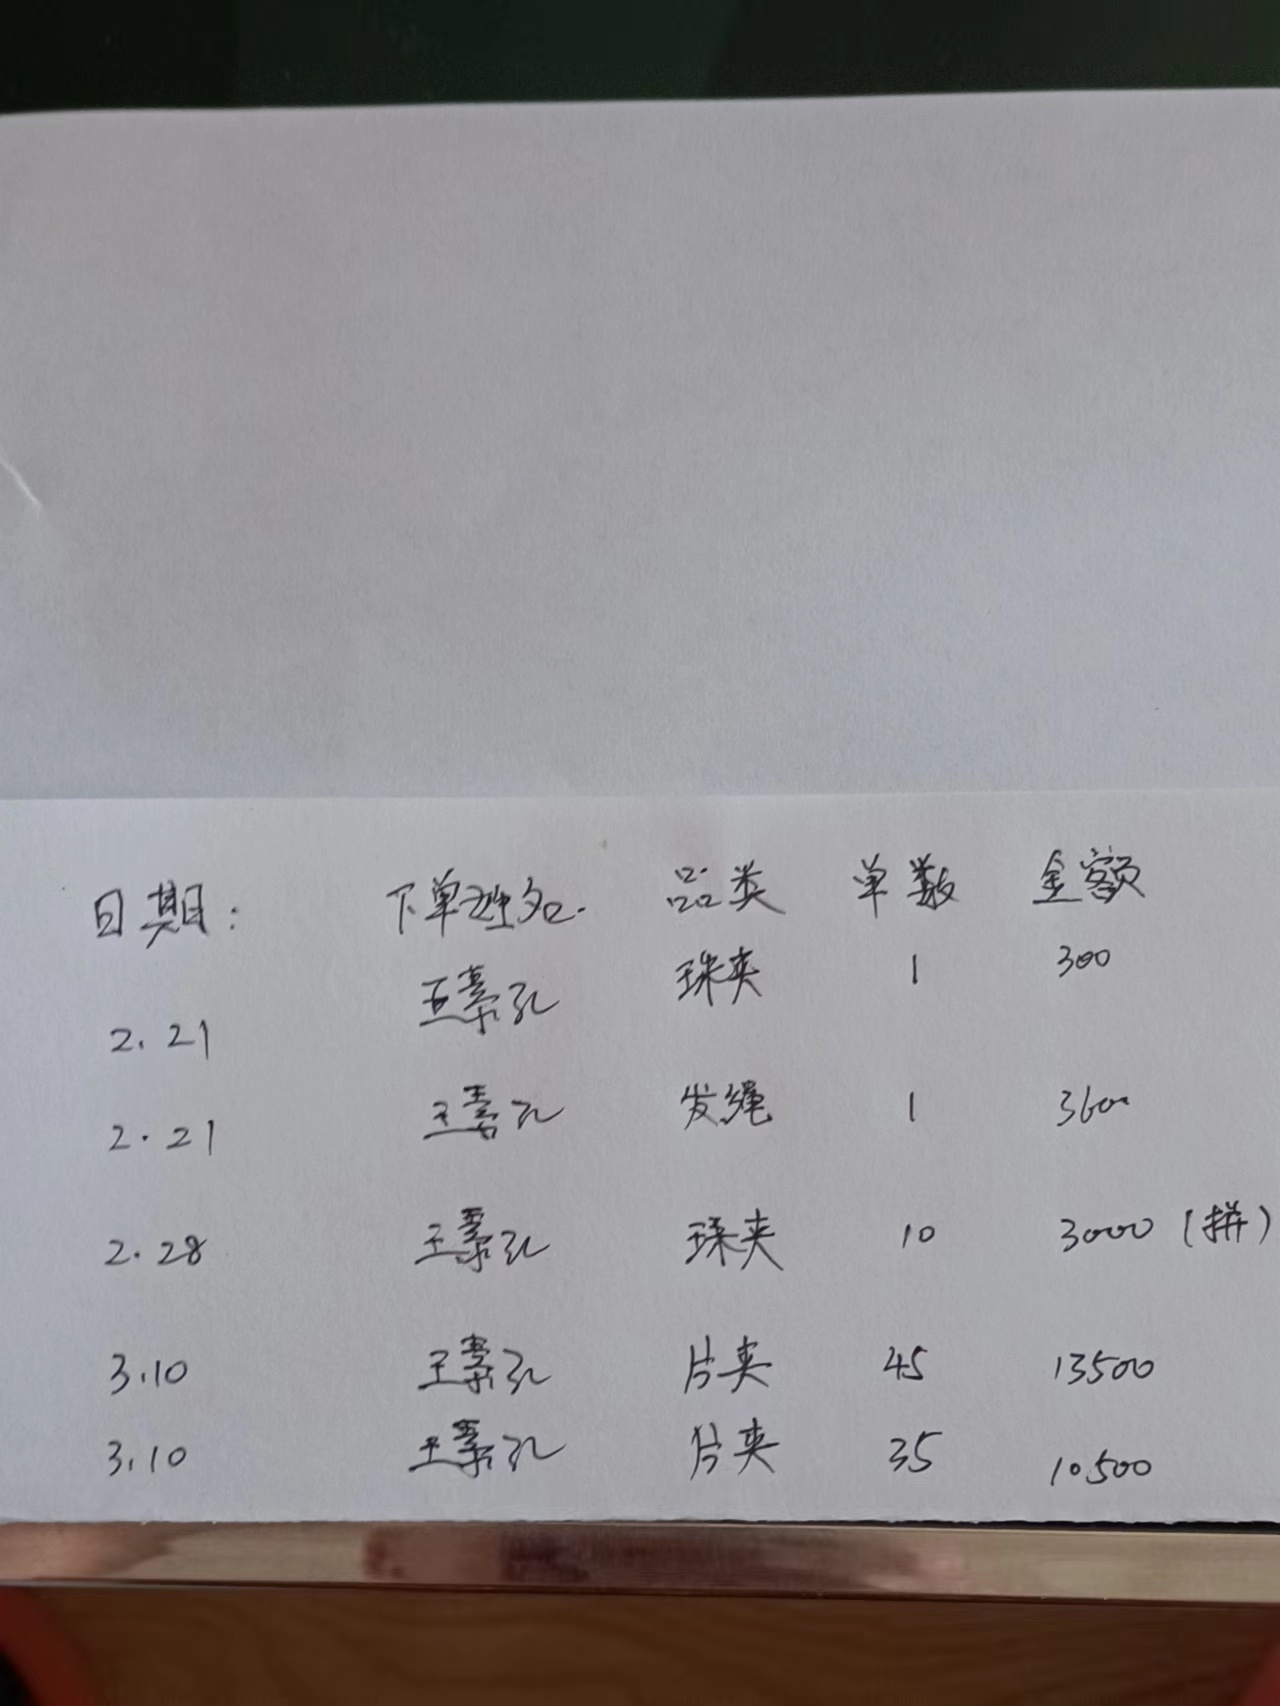 日期: 下单姓名. 品类 单数 金额
2.21 王素孔 珠夹 1 300
2.21 王素孔 发绳 1 3600
2.28 王素孔 珠夹 10 3000 (拼)
3.10 王素孔 片夹 45 13500
3.10 王素孔 片夹 35 10500